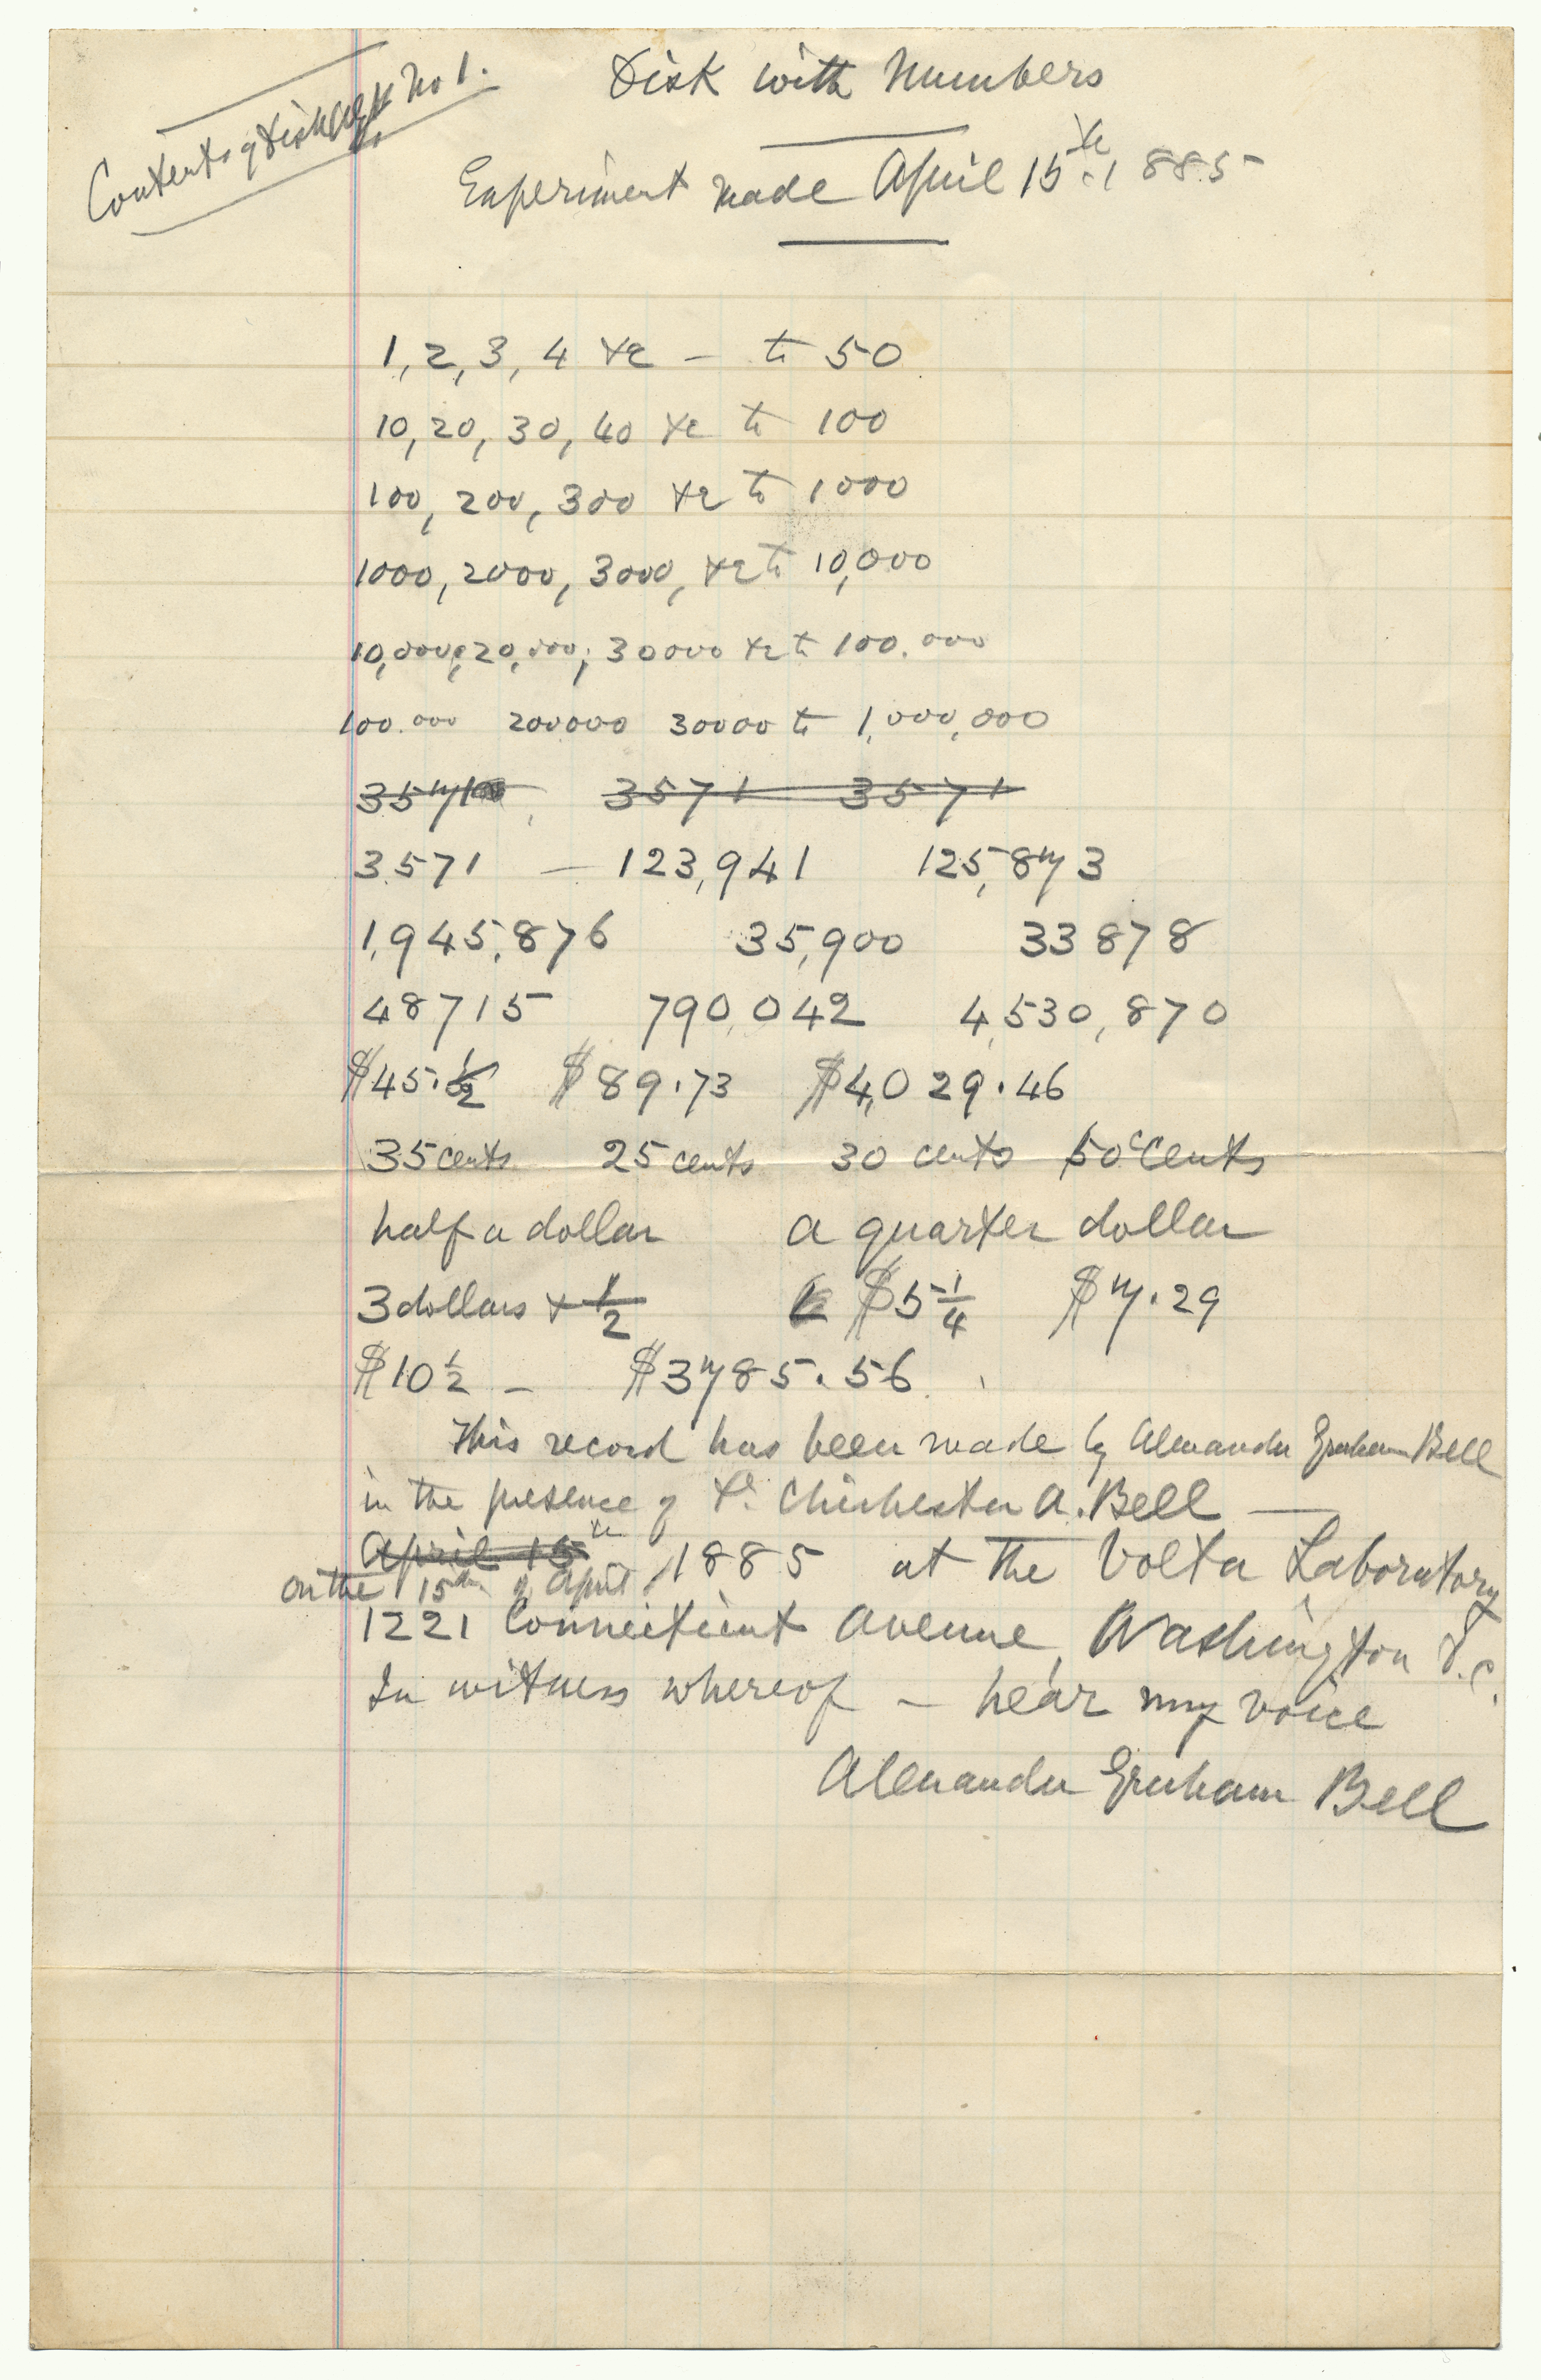 Contents of Disk AGB No 1.
Disk with Numbers
Experiment made April 15th 1885
1, 2, 3, 4 &c – to 50
10, 20, 30, 40 &c to 100
100, 200, 300 &c to 1000
1000, 2000, 3000, &c to 10,000
10,000; 20,000; 30000 &c to 100.000
100.000 200000 30000 to 1,000,000
3571, 3571 3571
3.571 – 123,941 125,873
1,945,876 35,900 33878
48715 790,042 4,530,870
$45.½ $89.73 $4,029.46
35 cents 25 cents 30 cents 50 cents
half a dollar a quarter dollar
3 dollars & ½ $5¼ $7.29
$10½ – $3785.56.
This record has been made by Alexander Graham Bell
in the presence of Dr. Chichester A. Bell —
April 15th
on the 15th of April, 1885 at the Volta Laboratory
1221 Connecticut Avenue, Washington D.C.
In witness whereof – hear my voice
Alexander Graham Bell